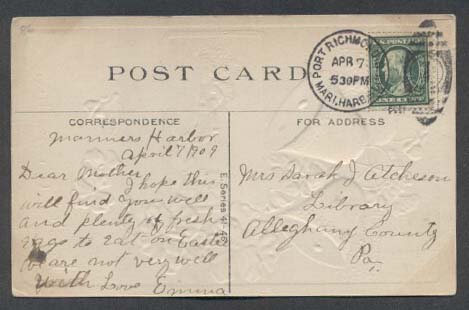 POST CARD
PORT RICHMOND
APR 7
530PM
MARI.HARB
U.S. POSTAGE
CORRESPONDENCE
Mariners Harbor
April 7 1909
Dear Mother
I hope this
will find you well
and plenty of fresh
eggs to eat on Easter
we are not very well
With Love Emma
E. Series #
FOR ADDRESS
Mrs Sarah J Atcheson
Library
Alleghany County
Pa,